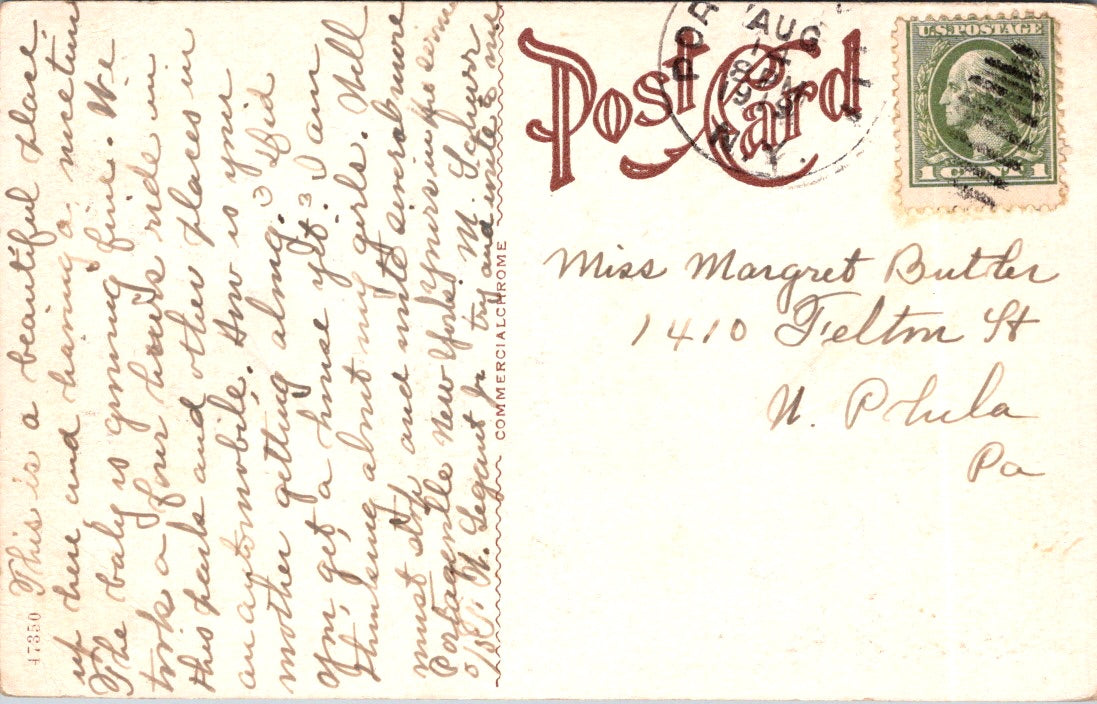 This is a beautiful place
up here and having a nice time
The baby is growing fine. We
took a four hours ride in
this park and other places in
an automobile. How is your
mother getting along. Did
you get a house yet. I am
thinking about my girls. Will
must stop and write since more
Portageville New York Yours in the
M.
try and write to me
47350
COMMERCIALCHROME
Post Card
POR
AUG
1
8 PM
19
N.Y.
U.S. POSTAGE
1 CENT 1
Miss Margret Butler
1410 Felton St
W. Phila
Pa